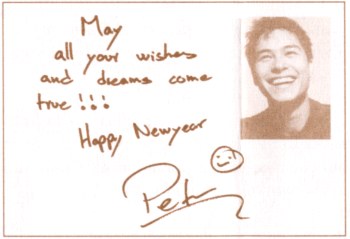 May
all your wishes
and dreams come
true !!!
Happy Newyear